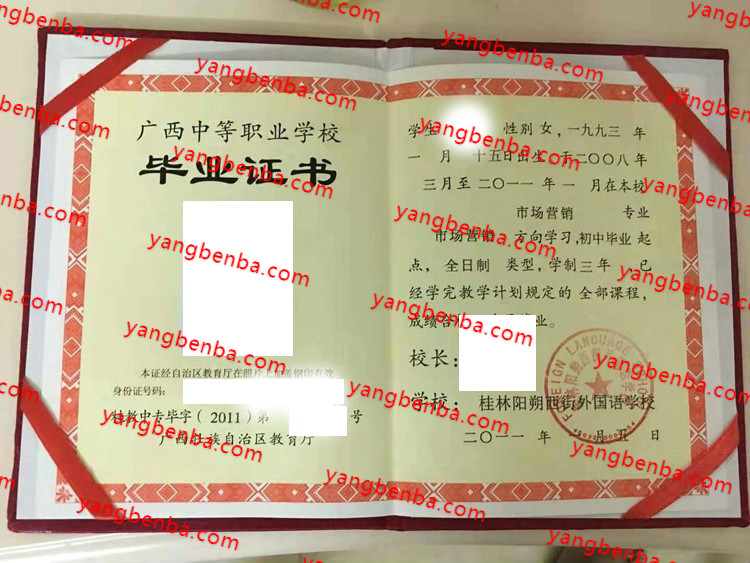 广西中等职业学校
毕业证书
本证经自治区教育厅在照片上加盖钢印有效
身份证号码：
桂教中专毕字（2011）第 号
广西壮族自治区教育厅
学生 性别 女，一九九三 年
一 月 十五日出生 于二〇〇八年
三月至二〇一一年 一 月在本校
市场营销 专业
市场营销 方向学习，初中毕业 起
点， 全日制 类型，学制三年 ，已
经学完教学计划规定的 全部课程，
成绩合 业。
校长：
学校： 桂林阳朔西街外国语学校
二〇一一 年 一 月 五 日
FOREIGN LANGUAGE
yangbenba.com